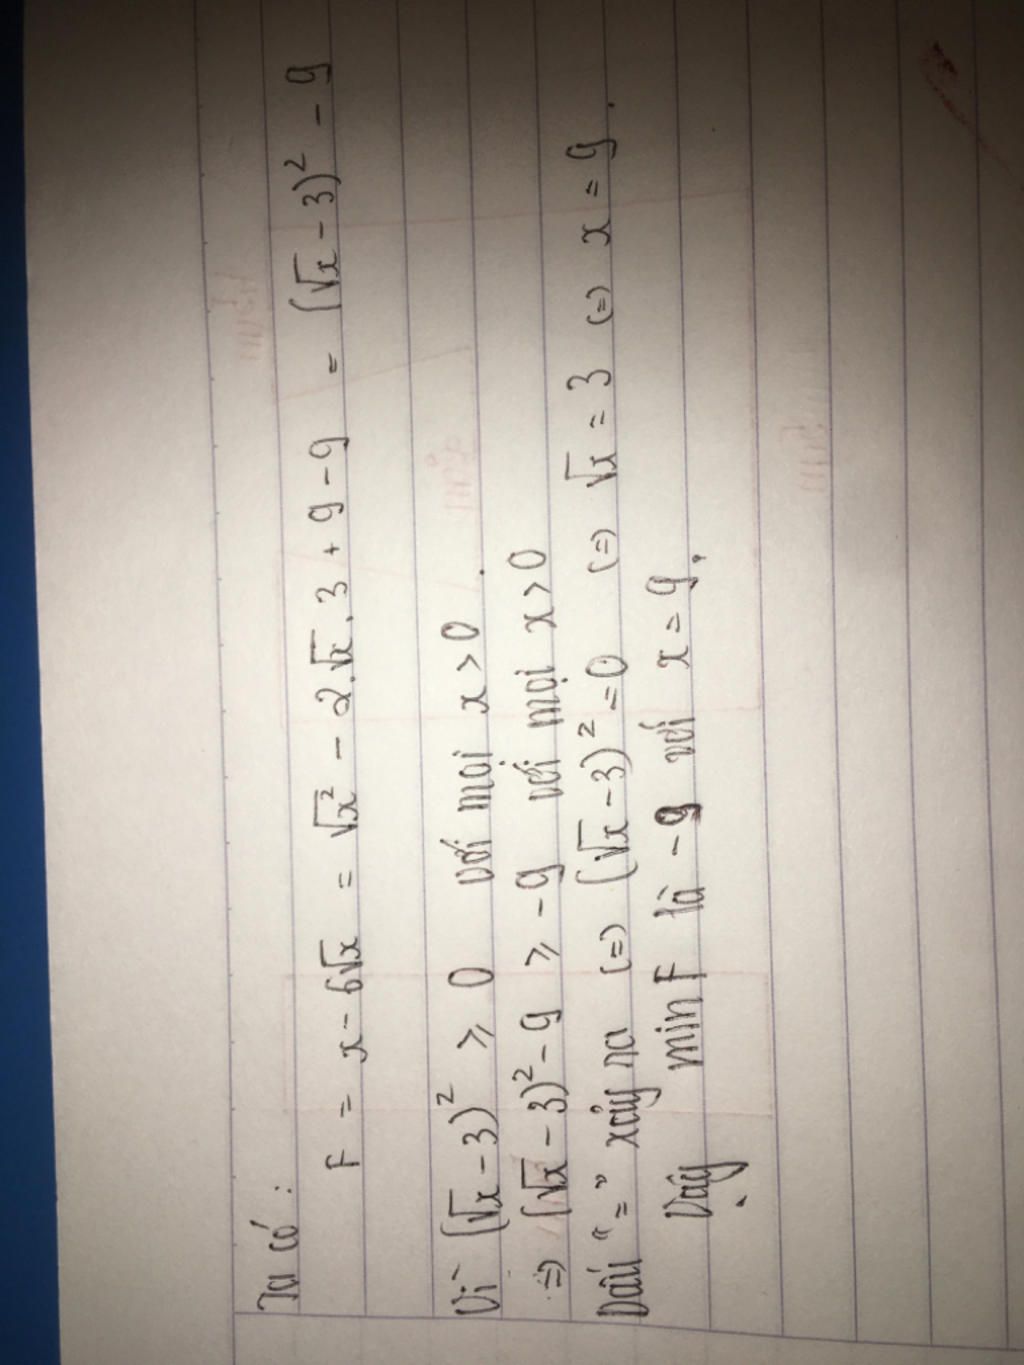 Ta có:
F = x - 6√x = √x² - 2.√x.3 + 9 - 9 = (√x - 3)² - 9
Vì (√x - 3)² ≥ 0 với mọi x > 0.
=> (√x - 3)² - 9 ≥ -9 với mọi x > 0
Dấu "=" xảy ra (=) (√x - 3)² = 0 (=) √x = 3 (=) x = 9.
Vậy min F là -9 với x = 9.